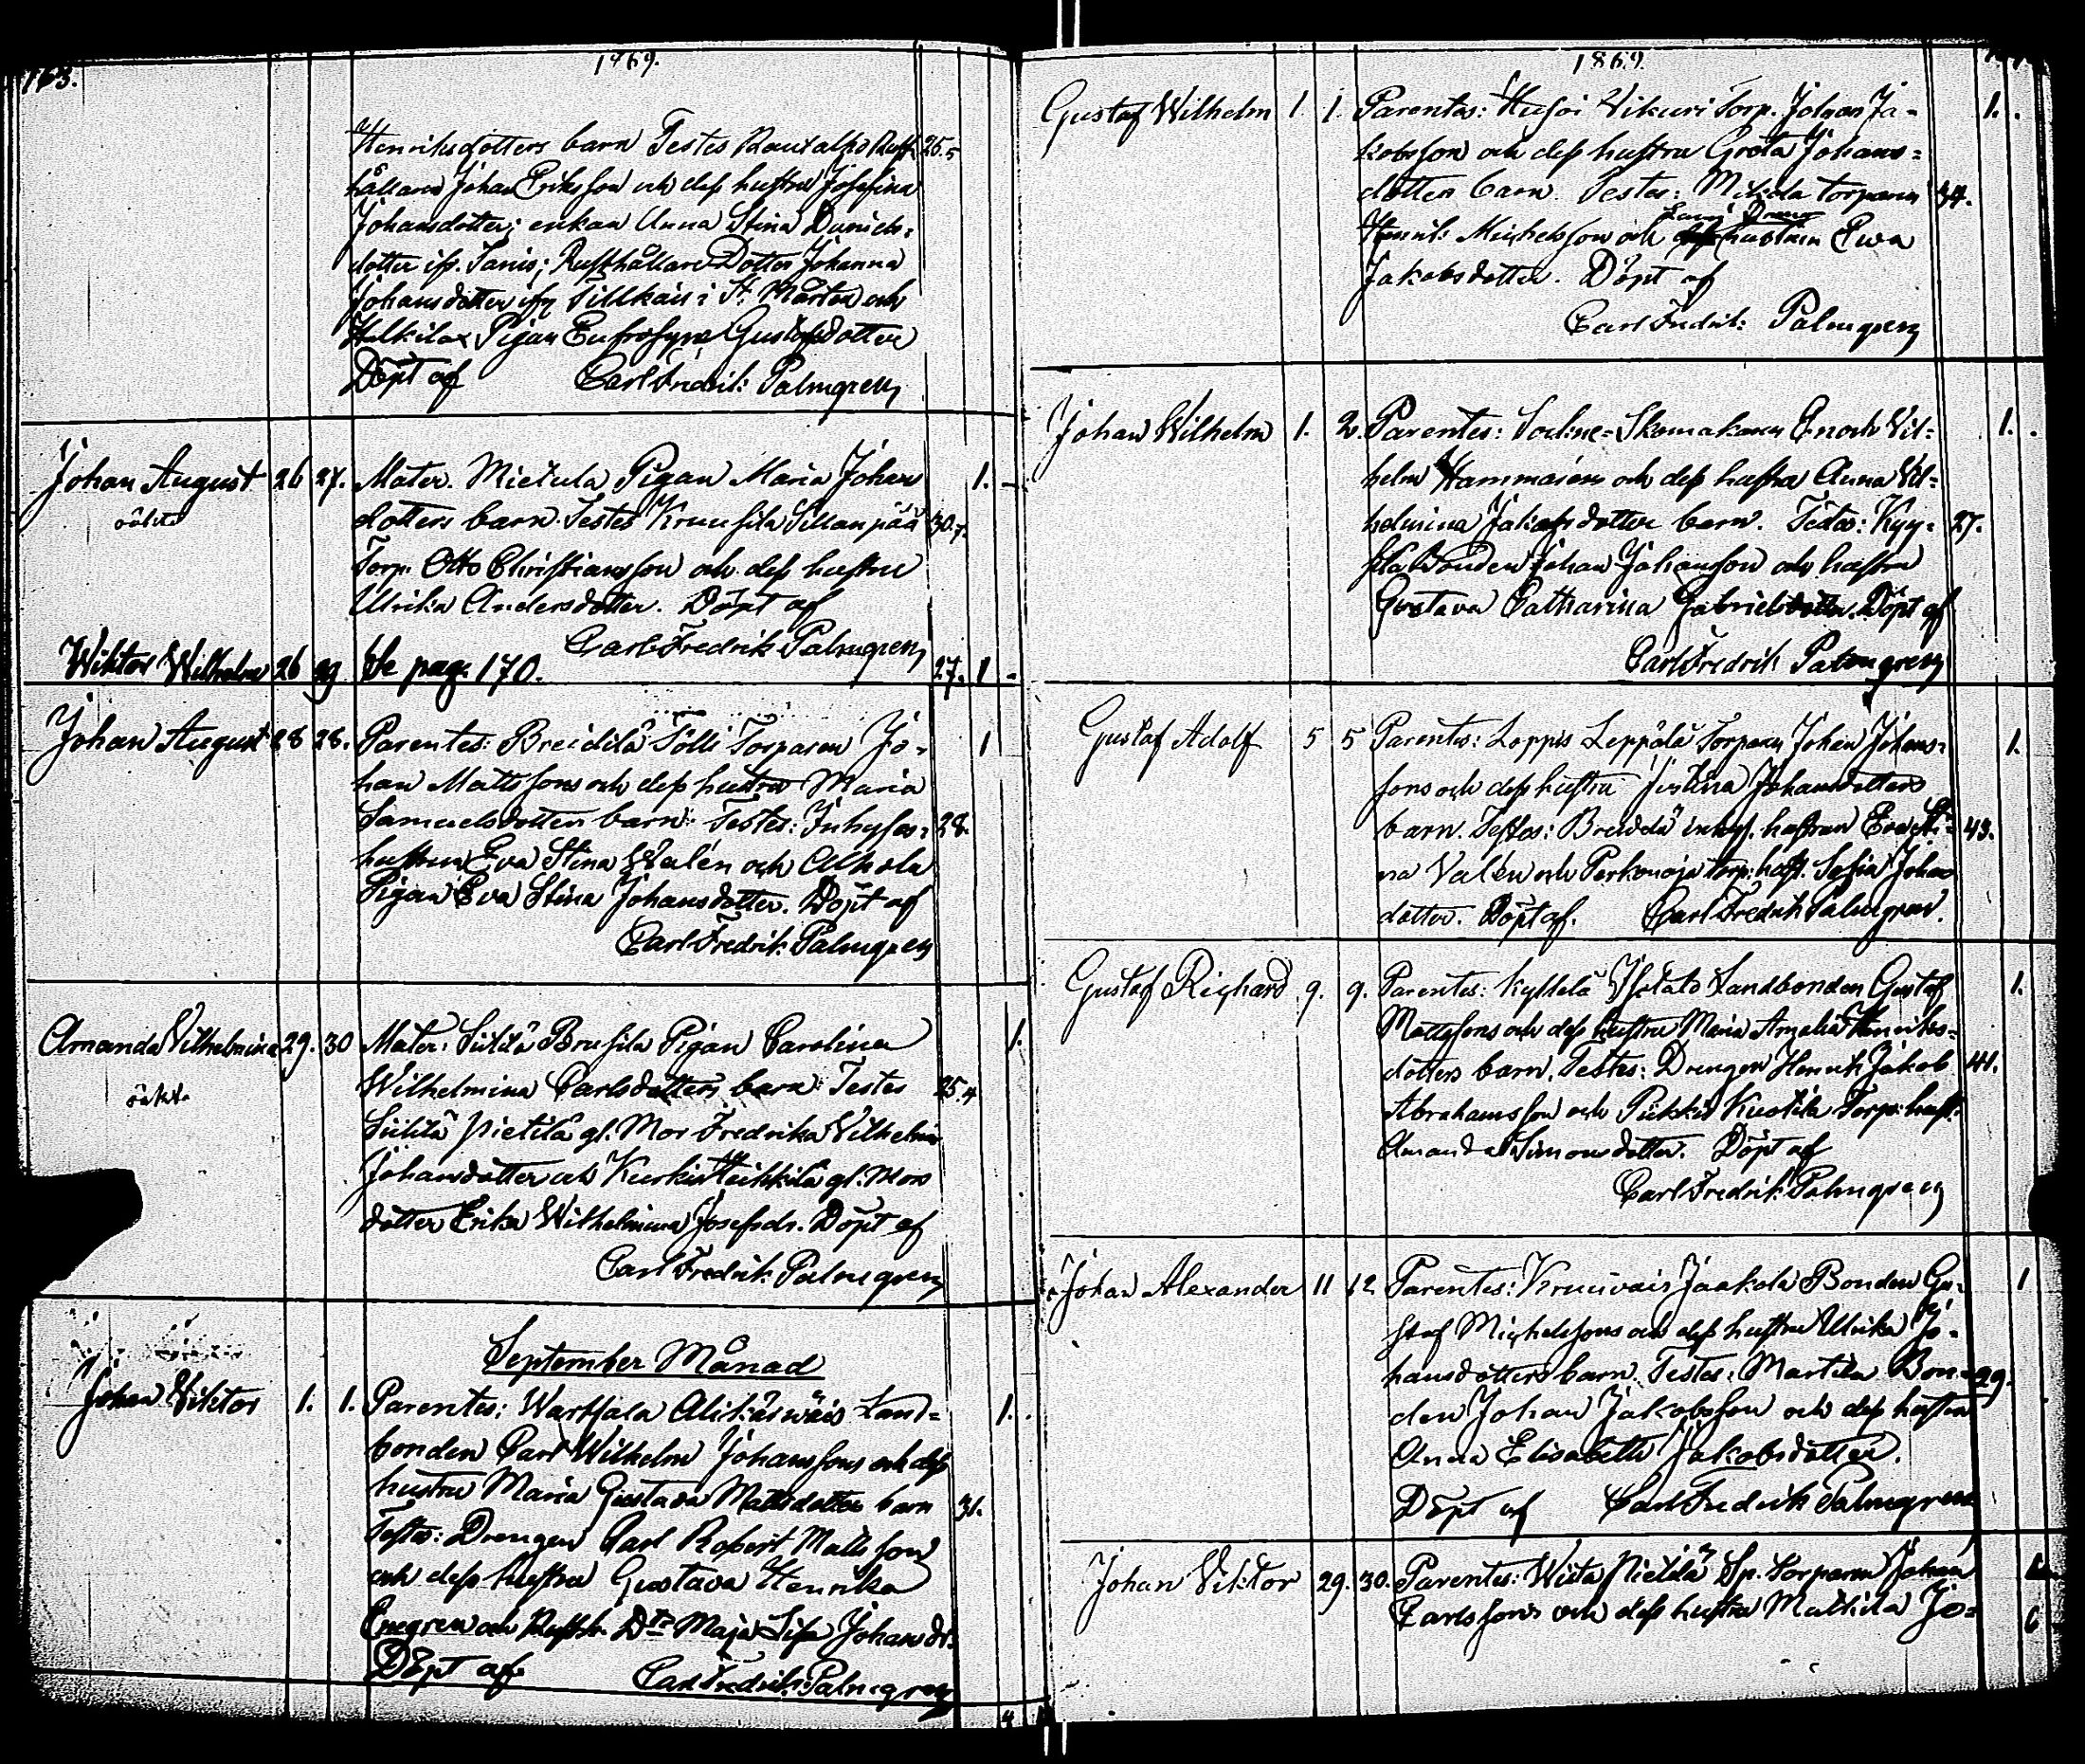 163.
1869.
Henriksdotters barn Testes Rautalho Rust- 25.5
hållaren Johan Eriksson och dess hustru Josefina
Johansdotter; enkan Anna Stina Daniels-
dotter ifr. Tanis; Rusthållare Dotter Johanna
Johansdotter ifr Tillkais i St. Mårtens och
Heikkilä Pigan Eufrosyne Gustafsdotter
Döpt af Carl Fredrik Palmgren
Johan August 26 27. Mater. Mietula Pigan Maria Johans 1. -
oäkta dotters barn. Testes Kruusila Sillanpää 30.7.
Torp. Otto Christiansson och dess hustru
Ulrika Andersdotter. Döpt af
Carl Fredrik Palmgren
Wiktor Wilhelm 26 29. Se pag. 170. 27. 1 -
Johan August 28 28. Parentes: Breidilä Tölli Torparen Jo- 1
han Mattssons och dess hustru Maria
Samuelsdotters barn: Testes: Inhyses- 28.
hustrun Eva Stina Walén och Alhola
Pigan Eva Stina Johansdotter. Döpt af
Carl Fredrik Palmgren
Amanda Vilhelmina 29. 30 Mater: Siitilä Brusila Pigan Carolina 1.
oäkta Wilhelmina Carlsdotters barn: Testes 25.4
Siitilä Pietilä gl. Mor Fredrika Vilhelmina
Johansdotter och Kurkis Heikkilä gl. Mors
dotter Erika Wilhelmina Josefsdr. Döpt af
Carl Fredrik Palmgren
September Månad
Johan Viktor 1. 1. Parentes: Wartsala Alikärwäis Land- 1.
bonden Carl Wilhelm Johanssons och dess
hustru Maria Gustava Mattsdotters barn 31.
Testes: Drengen Carl Robert Mattsson
och dess hustru Gustava Henrika
Enegren och Rusth. Dtr Maja Lisa Johansdr.
Döpt af Carl Fredrik Palmgren
1869.
Gustaf Wilhelm 1. 1. Parentes: Torp. Johan Ja- 1.
kobsson och dess hustru Greta Johans-
dotters barn. Testes: Mikola torparen 34.
Henrik Michelsson och hustrun Ewa
Jakobsdotter. Döpt af
Carl Fredrik: Palmgren
Johan Wilhelm 1. 2. Parentes: Sockne-Skomakaren Enoch Vil- 1.
helm Hammarén och dess hustru Anna Vil-
helmina Jakobsdotters barn. Testes: Kyy- 27.
Bonden Johan Johansson och hustru
Gustava Catharina Gabrielsdotter. Döpt af
Carl Fredrik Palmgren
Gustaf Adolf 5 5 Parentes: Loppis Leppälä Torparen Johan Johans- 1.
sons och dess hustru Justina Johansdotters
barn. Testes: Breidilä inhys. hustrun Eva Sti- 43.
na Valén och Perkonoja torp: hust. Sofia Johans
dotter. Döpt af. Carl Fredrik Palmgren.
Gustaf Richard 9. 9. Parentes: Kyllelä Landbonden Gustaf 1.
Mattssons och dess hustru Maria Amalia Henriks-
dotters barn. Testes: Drengen Henrik Jakob 41.
Abrahamsson och Kustila Torp: hust:
Amanda Simonsdotter. Döpt af
Carl Fredrik Palmgren
Johan Alexander 11 12 Parentes: Kruuvais Jaakola Bonden Gu- 1
staf Michelssons och dess hustru Ulrika Jo-
hansdotters barn. Testes: Martila Bon- 29.
den Johan Jakobsson och dess hustru
Anna Elisabeth Jakobsdotter.
Döpt af Carl Fredrik Palmgren
Johan Viktor 29. 30. Parentes: Wista Pietilä Sp. Torparen Johan
Carlssons och dess hustru Matilda Jo-